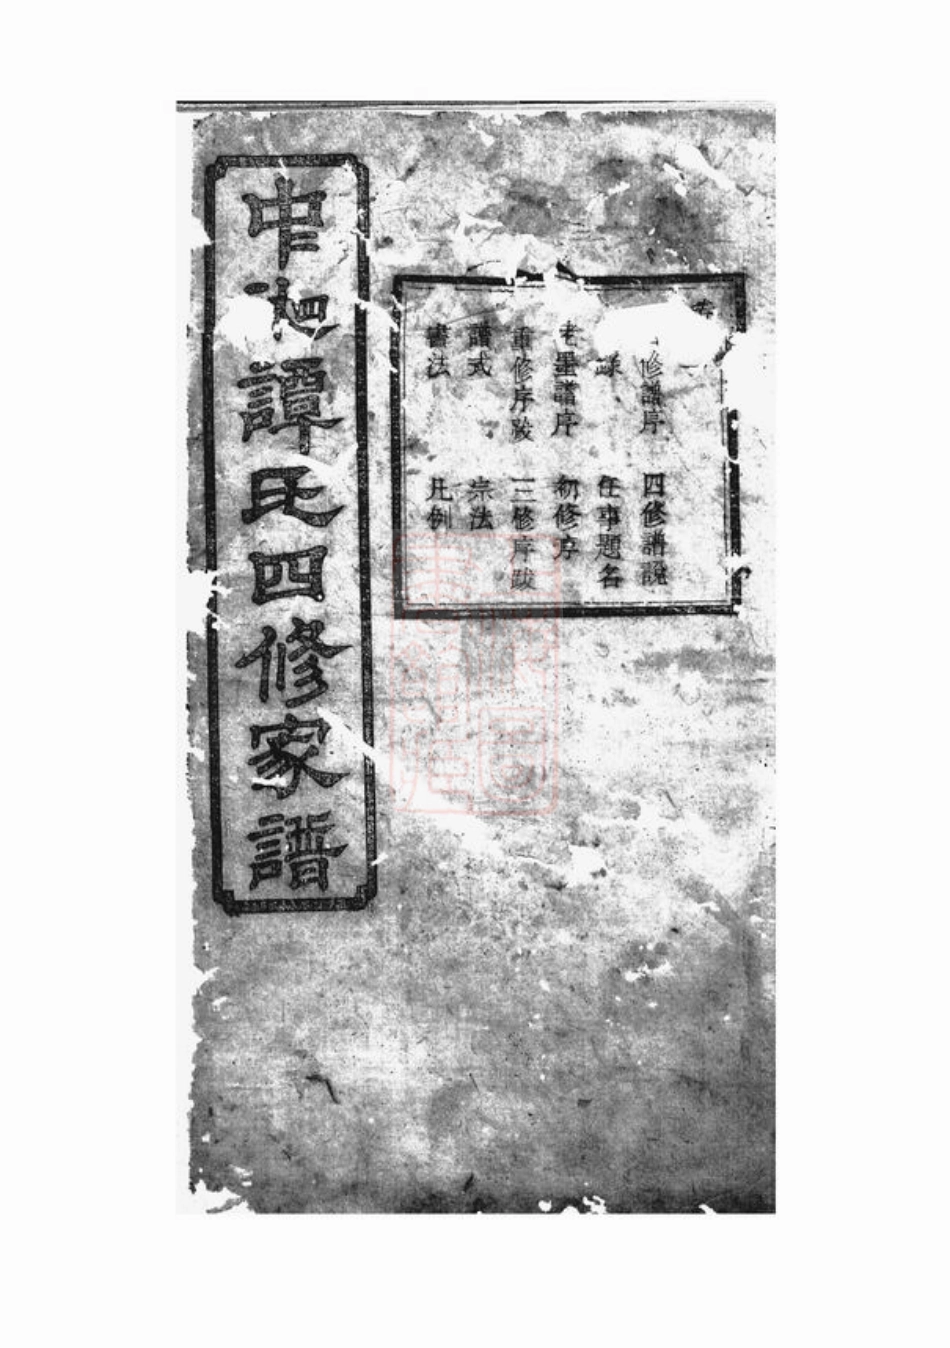 修譜序 四修譜說
任事題名
老墨譜序 初修序
重修序跋 三修序跋
譜式 宗法
書法 凡例
中譚氏四修家譜